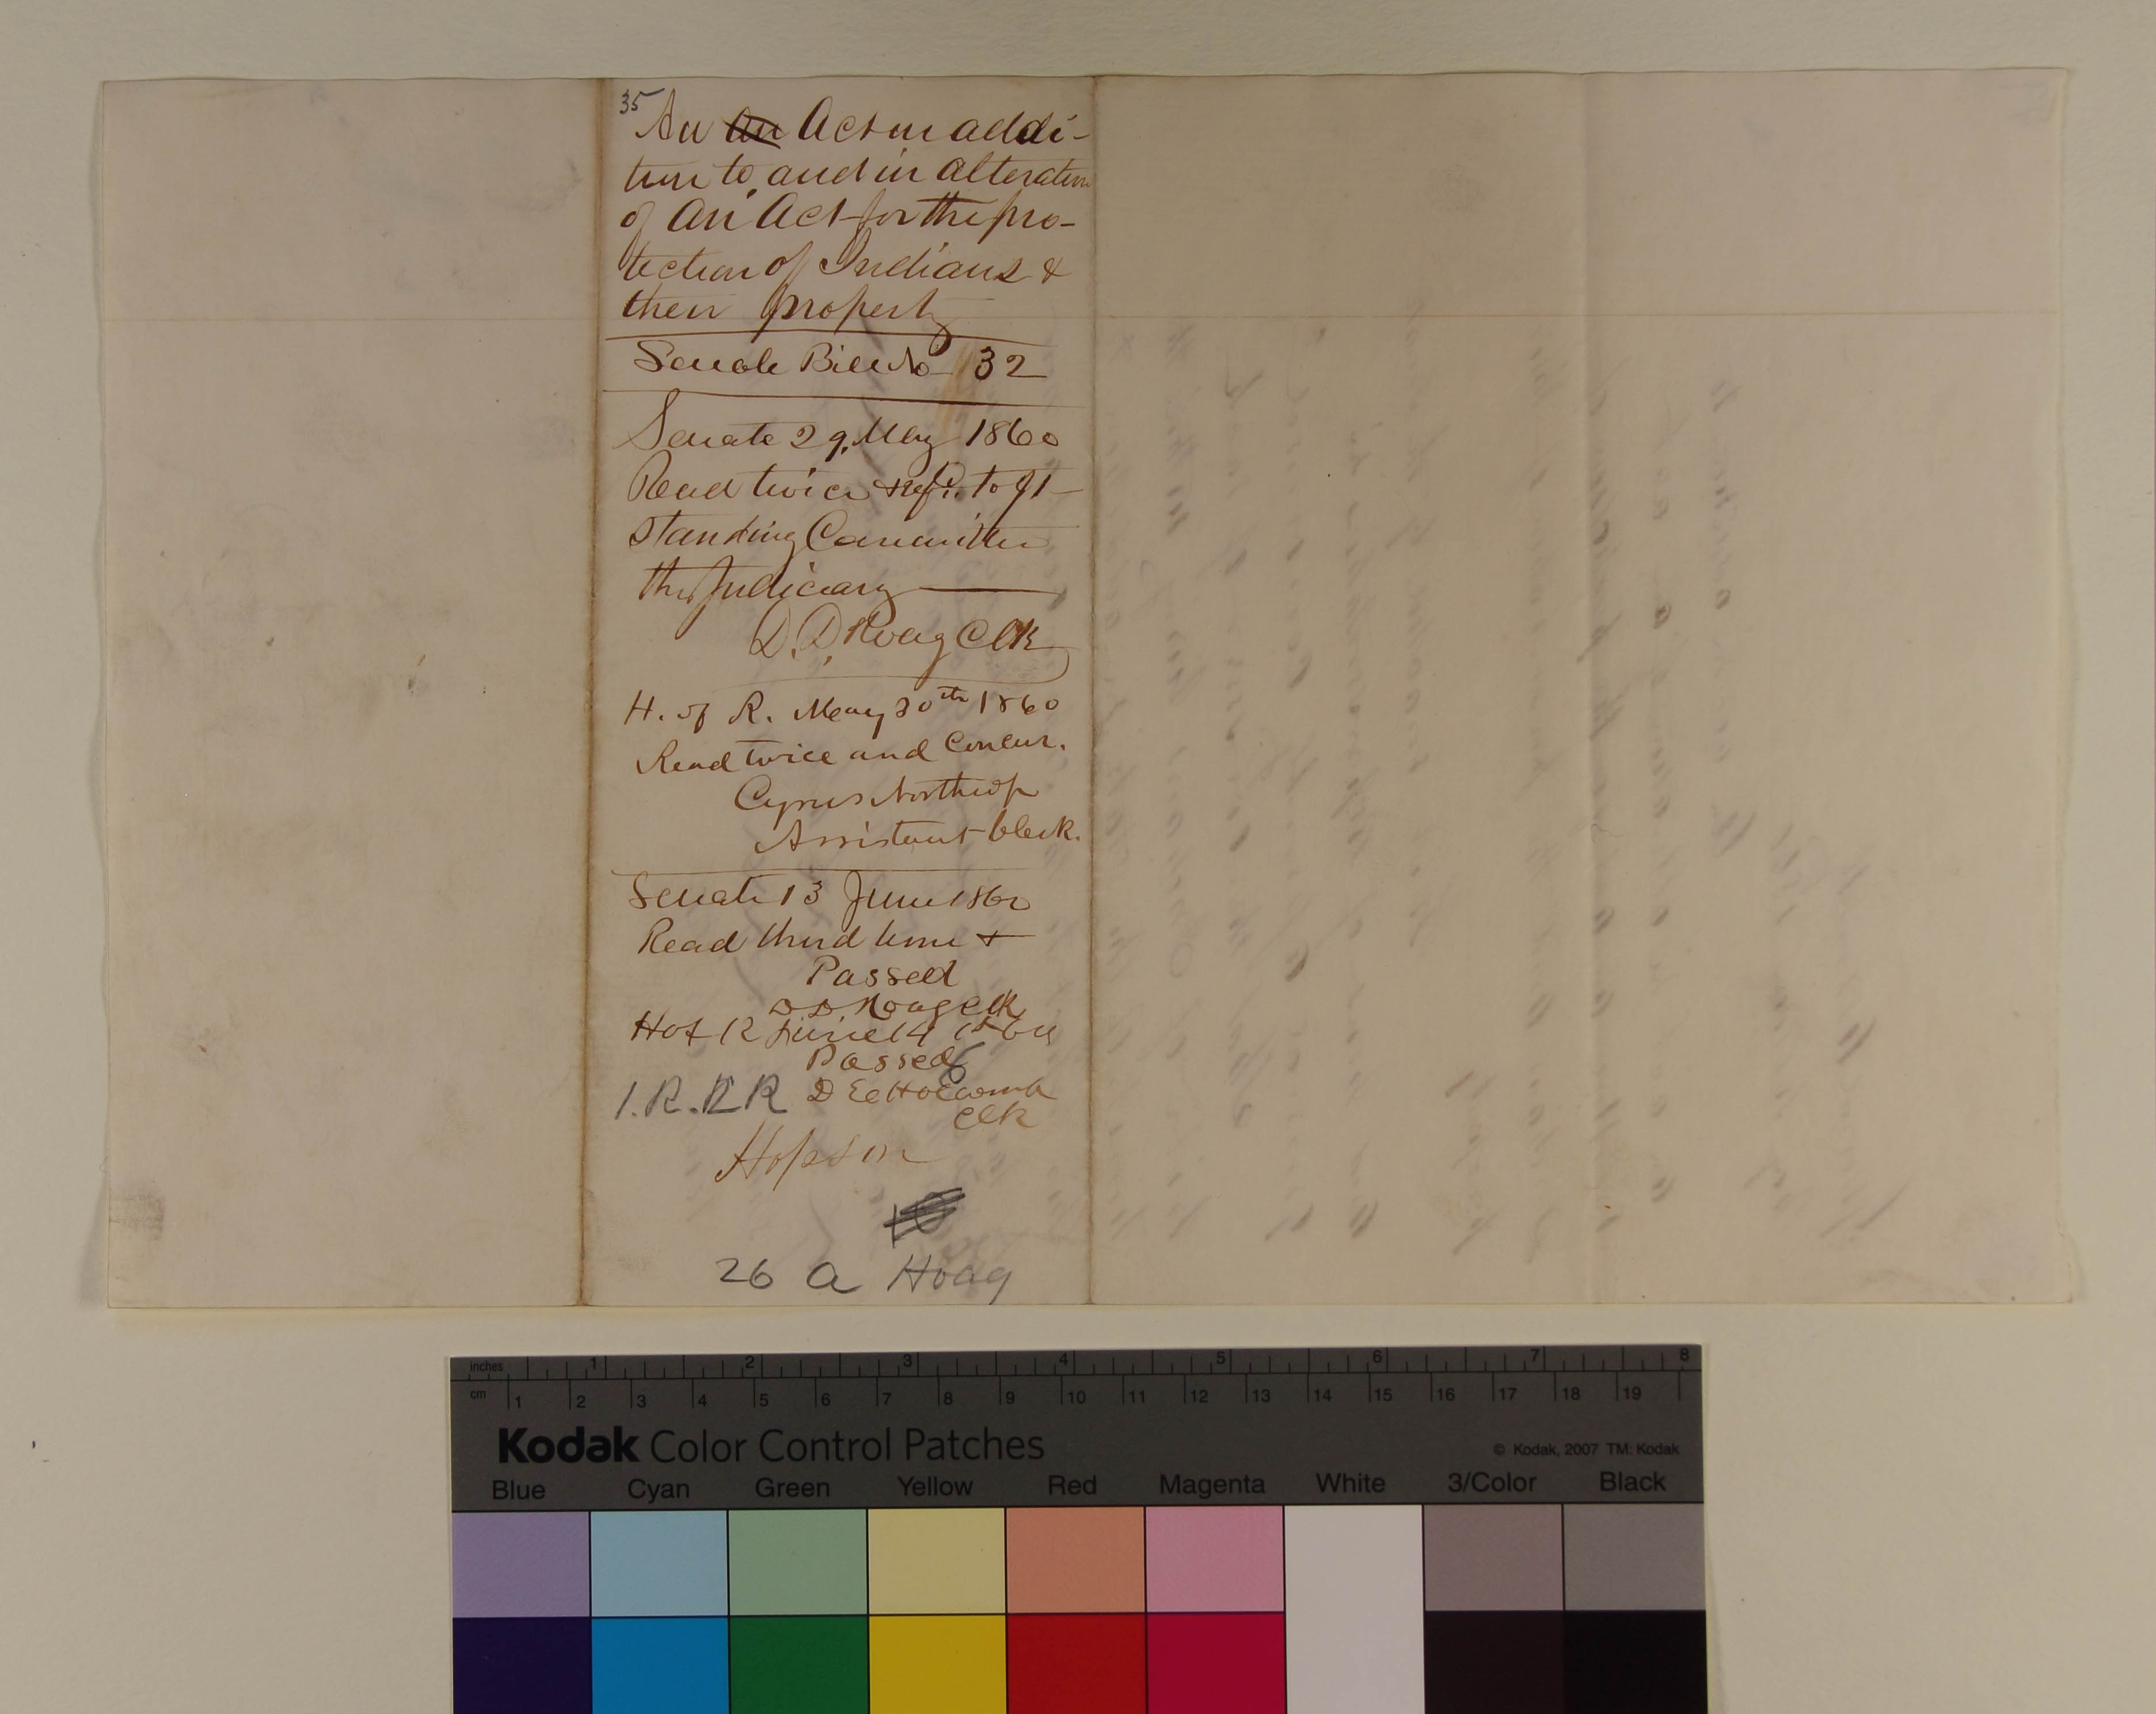 35
An an Act in addi-
tion to, and in alteration
of "An Act for the pro-
tection of Indians &
their property
Senate Bill No 32
Senate 29. May 1860
Read twice & refd. to Jt
Standing Committee
the Judiciary
D. D. Hoag Clk
H. of R. May 30th 1860
Read twice and Concur.
Cyrus Northrop
Assistant Clerk.
Senate 13 June 1860
Read third time &
Passed
D D. Hoag Clk
H of R June 14 1860
Passed
1. R. R R D E Holcomb
Clk
Hopson
26 a Hoag
inches 1 2 3 4 5 6 7 8
cm 1 2 3 4 5 6 7 8 9 10 11 12 13 14 15 16 17 18 19
Kodak Color Control Patches
© Kodak, 2007 TM: Kodak
Blue Cyan Green Yellow Red Magenta White 3/Color Black